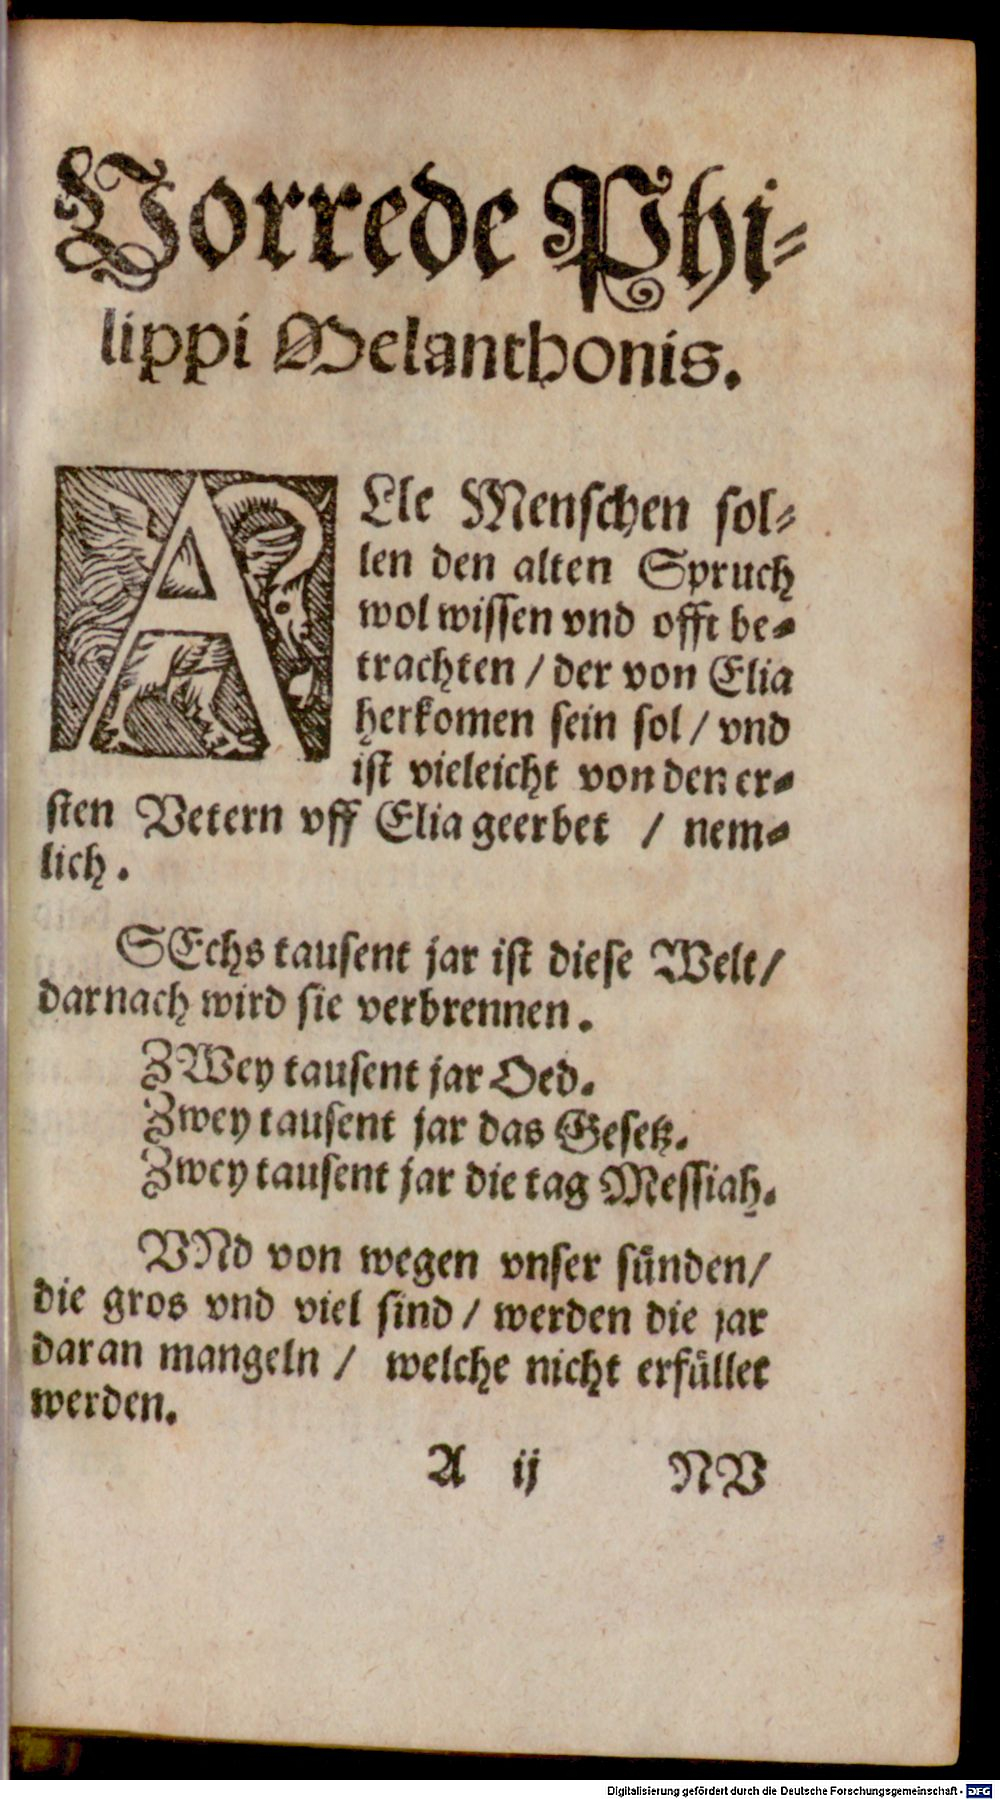 Vorrede Phi-
lippi Melanthonis.
ALle Menschen sol-
len den alten Spruch
wol wissen vnd offt be-
trachten / der von Elia
herkomen sein sol / vnd
ist vieleicht von den er-
sten Vetern vff Elia geerbet / nem-
lich.
SEchs tausent jar ist diese Welt /
darnach wird sie verbrennen.
ZWey tausent jar Oed.
Zwey tausent jar das Gesetz.
Zwey tausent jar die tag Messiah.
VNd von wegen vnser sünden /
die gros vnd viel sind / werden die jar
daran mangeln / welche nicht erfüllet
werden.
A ij NV
Digitalisierung gefördert durch die Deutsche Forschungsgemeinschaft - DFG